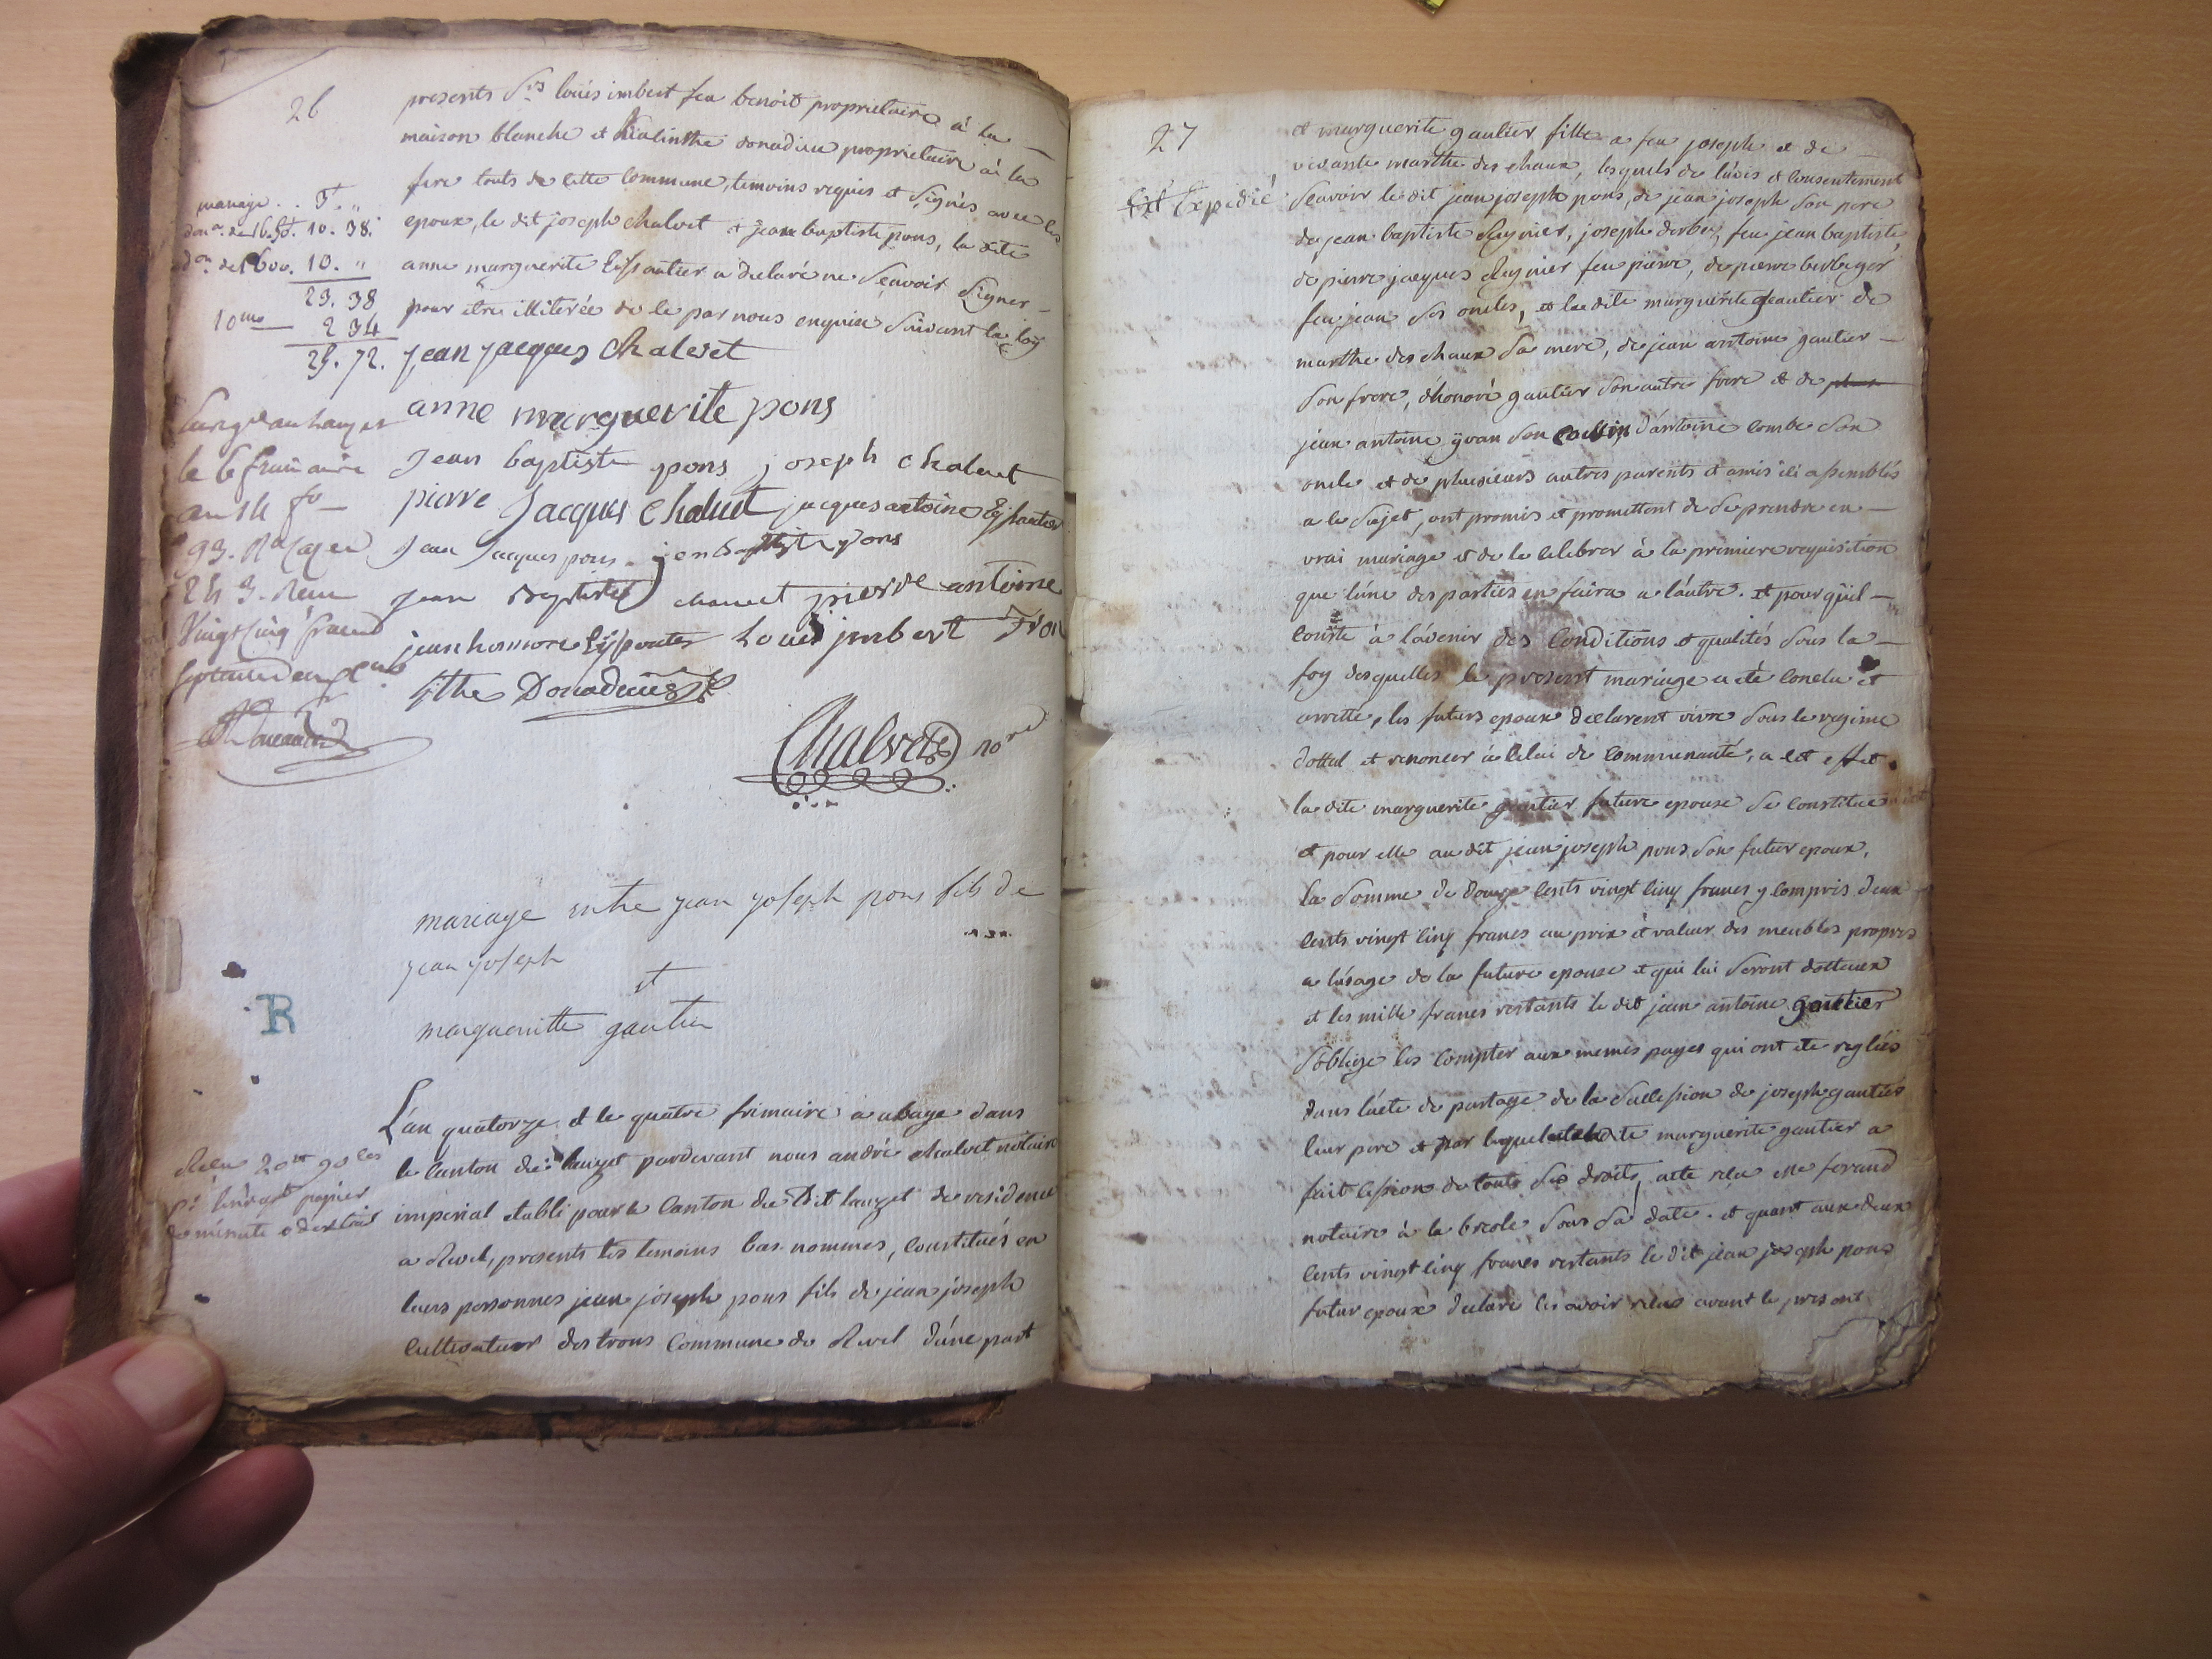 26
presents Srs loüis imbert feu benoit proprietaire à la
maison blanche et hialinthe donadieu proprietaire à la
fere touts de cette commune, temoins requis et signés avec les
epoux, le dit joseph chalvet et jean baptiste pons, la dite
anne marguerite Eissautier a declaré ne sçavoir signer
pour etre illiterée de le par nous enquise suivant la loy
mariage . . 3. "
10. 38.
10. "
23. 38
10me 2 34
25. 72.
jean jacques chalvet
anne marguerite pons
jean baptiste pons joseph chalvet
pierre jacques chalvet jacques antoine Eyssautier
jean jacques pons jean baptiste pons
jean baptiste chalvet pierre antoine
jean honnore Eyssautier Loüis imbert
sithe Donadieu
Chalvet nore
le 6 frimaire
an 14 fo
Vingt cinq francs
septante deux
mariage entre jean joseph pons fils de
jean joseph
et
margueritte gautier
R
L'an quatorze et le quatre frimaire à ubaye dans
le canton du lauzet pardevant nous andré chalvet notaire
imperial etabli pour le canton du dit lauzet de residence
a Revel, presents les temoins bas nommés, constitués en
leurs personnes jean joseph pons fils de jean joseph
cultivateur des trons commune de Revel d'une part
papier
de minute et d'extrait
27
Expedié
et marguerite gautier fille a feu joseph et de
vivante marthe des chaux, lesquels de l'avis et consentement
sçavoir le dit jean joseph pons, de jean joseph son pere
de jean baptiste Reynier, joseph derbez, feu jean baptiste,
de pierre jacques Reynier feu pierre, de pierre berbeyer
feu jean ses oncles, et la dite marguerite gautier de
marthe des chaux sa mere, de jean antoine gautier
son frere, d'honoré gautier son autre frere et de
jean antoine yvan son cousin d'antoine combe son
oncle et de plusieurs autres parents et amis ici assemblés
a ce sujet, ont promis et promettent de se prendre en
vrai mariage et de le celebrer à la premiere requisition
que l'une des parties en faira a l'autre. et pour qu'il
conste à l'avenir des conditions et qualités sous la
foy desquelles le present mariage a eté conclu et
arretté, les futurs epoux declarent vivre sous le regime
dottal et renoncer à celui de communauté, a cet effet
la dite marguerite gautier future epouse se constitue
et pour elle au dit jean joseph pons son futur epoux,
la somme de douze cents vingt cinq francs y compris deux
cents vingt cinq francs au prix et valeur des meubles propres
a l'usage de la future epouse et qui lui seront dotteaux
et les mille francs restants le dit jean antoine gautier
s'oblige les compter aux memes payes qui ont eté reglées
dans l'acte de partage de la succession de joseph gautier
leur pere et par laquelle la dite marguerite gautier a
fait cession de touts ses droits, acte reçu Me feraud
notaire à la breole sous sa date. et quant aux deux
cents vingt cinq francs restants le dit jean joseph pons
futur epoux declare les avoir reçus avant le present